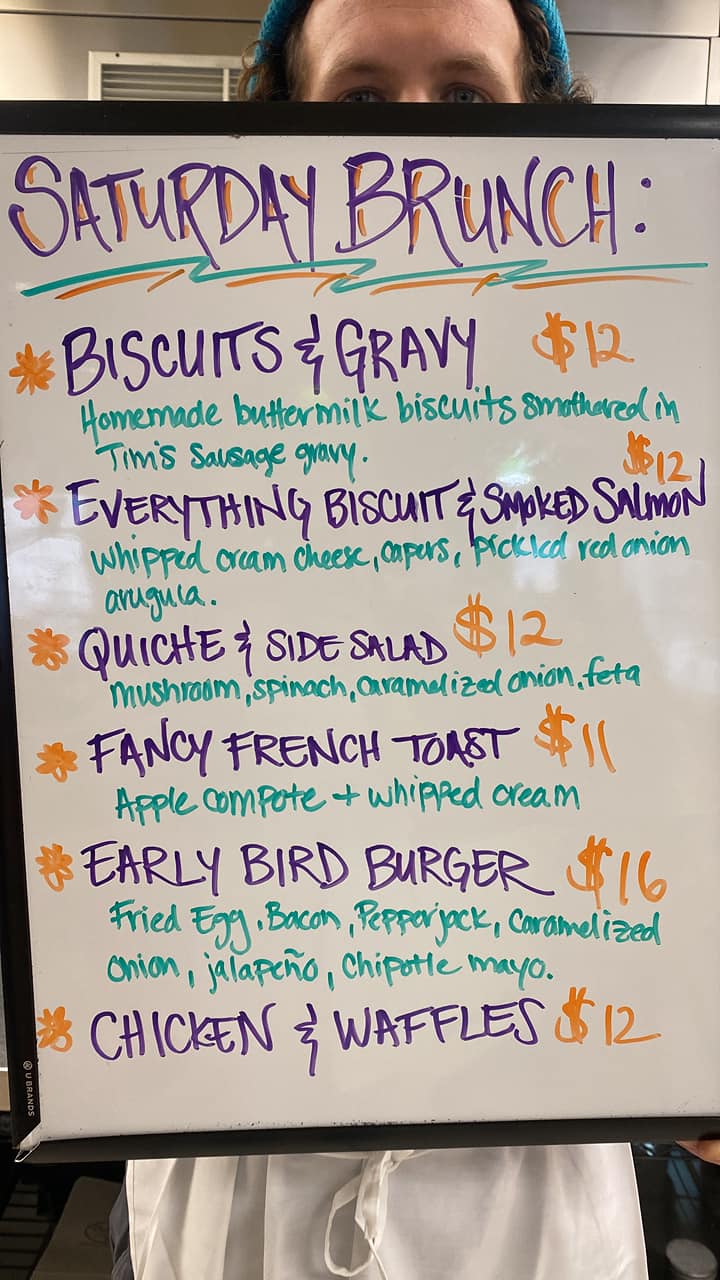 SATURDAY BRUNCH:
BISCUITS & GRAVY $12
Homemade buttermilk biscuits smothered in
Tim's Sausage gravy.
$12
EVERYTHING BISCUIT & SMOKED SALMON
whipped cream cheese, capers, pickled red onion
arugula.
QUICHE & SIDE SALAD $12
mushroom, spinach, caramelized onion, feta
FANCY FRENCH TOAST $11
Apple compote + whipped cream
EARLY BIRD BURGER $16
Fried Egg, Bacon, Pepperjack, Caramelized
onion, jalapeño, Chipotle mayo.
CHICKEN & WAFFLES $12
U BRANDS